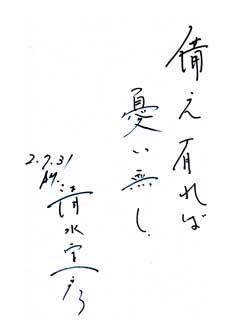 備え有れば
憂い無し
2.7.31
清水宣彦